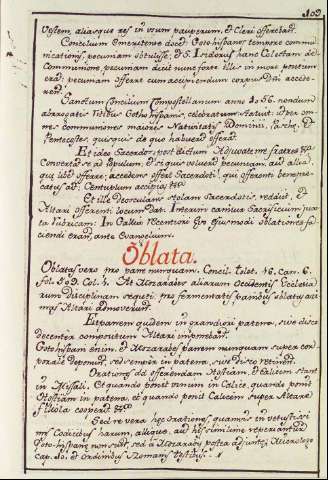 109
Vestem, aliasque res in usum pauperum, et Cleri offerebant.
Concilium Emeritense docet, Gotohispanos tempore commu-
nicationis, pecuniam obtulisse, et S. Isidorus hanc Collectam dic.
Communione, pecuniam divit nune forte illis in more positum
erat, pecuniam offerre cum accipiendum corpus Dni accede-
rent.
Sanctum Concilium Compostellanum anno 1056. nondum
abrogatis Ritibus Gothohispanis, celebratum statuit: ut per om-
nes communiones maiores Nativitatis Domini, Pasche, et
Pentecostes quisquis de quo habuerit offerat
Et ideo Sacerdos post dictum Adiuvate me fratres
Convertat se ad populum, et si quis voluerit pecuniam, aut aliud
quid libet offerre; accedens offert Sacerdoti, qui offerenti benepre-
catus ait. Centuplum accipias
Et ille Deosculans stolam Sacerdotis, reddit, et
Altari offerenti locum dat. Interim canitur Sacrificium iuxta
rubricam: In
faciendi erant, ante Evangelium.
Oblata.
Oblatas vero pro pane nunquam. Concil. Tolet. 16. Can. 6.
fol. 509. Col. 1. At Mozarabes aliarum Occidentis Ecclesia-
rum disciplinam sequti, pro fermentatis panibus oblatas azi-
mas Altari admoverunt.
Et panem quidem in grandiori patena, sive disco
decenter compositum Altari imponebant.
Gotohispani enim, et Mozarabes panem nunquam supra cor-
poralia deponunt, sed semper in patena, sive disco retinent.
Orationes ad offerendam Hostiam, et Calicem stant
in Missali. Et quando ponit vinum in Calice, quando ponit
Hostiam in patena, et quando ponit Calicem super Altare
et filiola cooperit
Sed re vera hec orationes, quamvis in vetustissi-
mis Codicibus harum, aliique, aut his similime reperiantur
Goto-hispane non sunt, sed a Mozarabes postea adjuncte, Micrologo
cap. 10. et Ordinibus Romanis testibus.